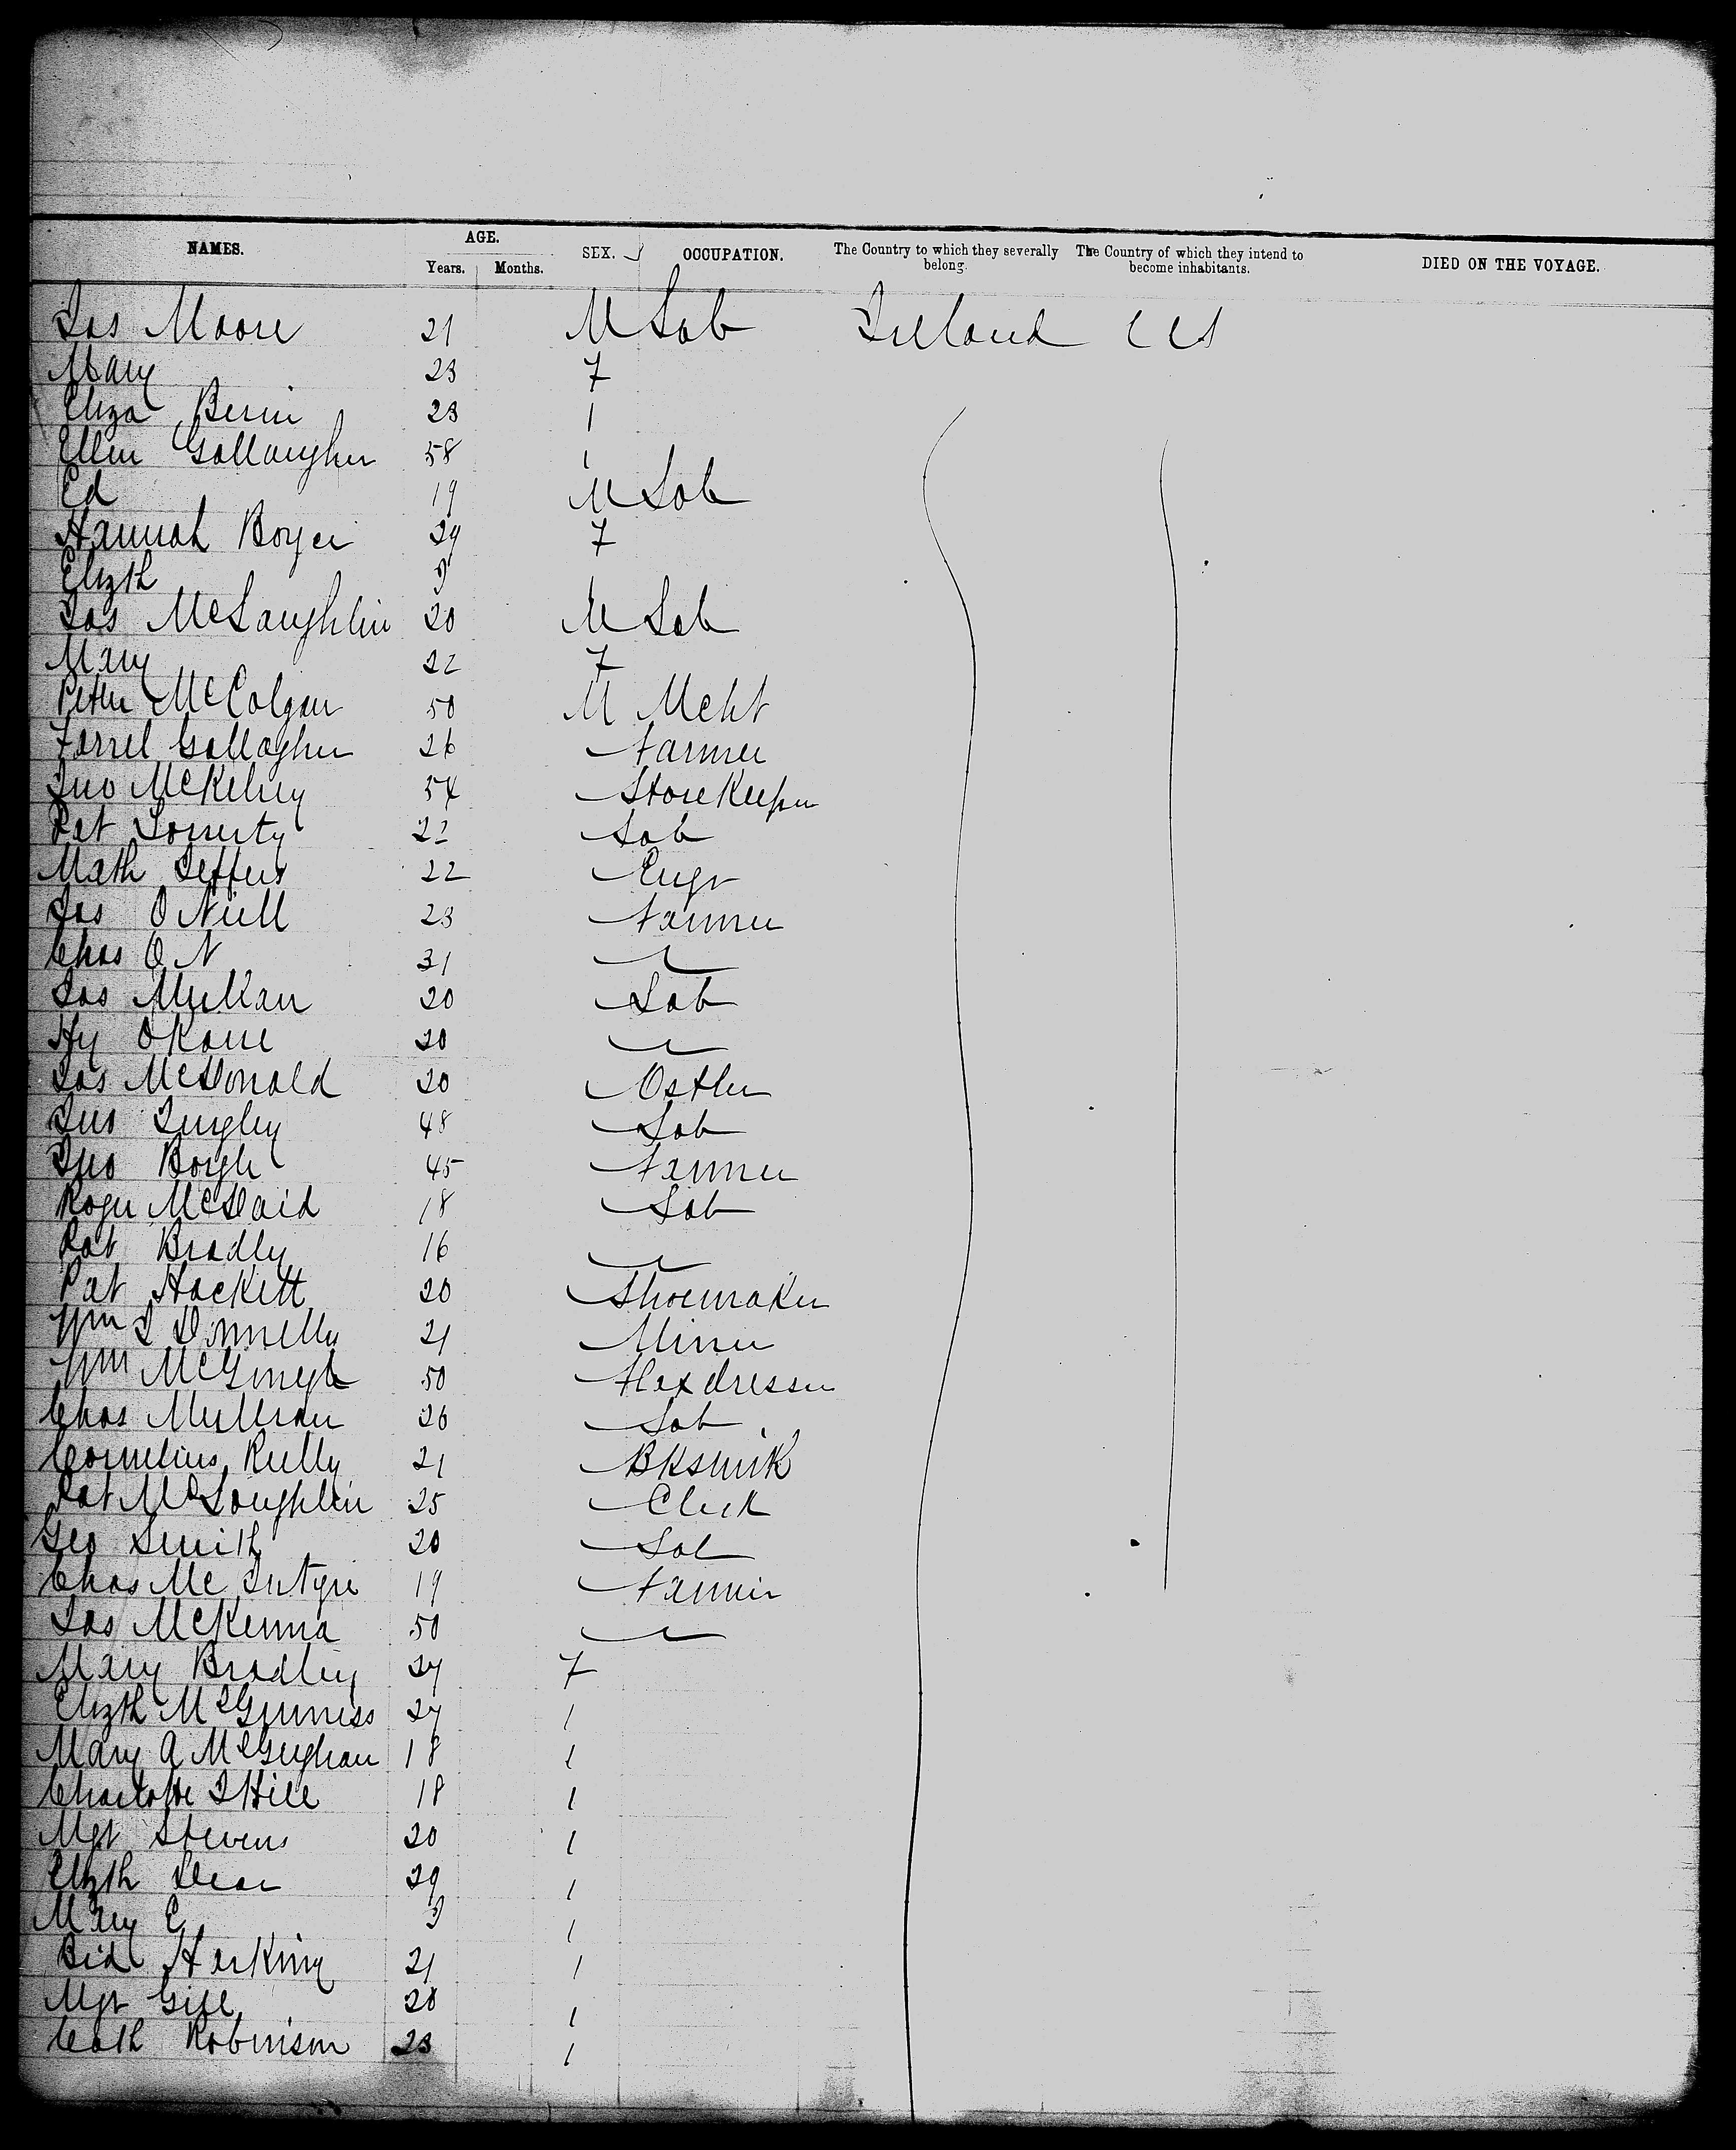 NAMES. AGE. Years. Months. SEX. OCCUPATION. The Country to which they severally belong. The Country of which they intend to become inhabitants. DIED ON THE VOYAGE.
Jas Moore 21 M Lab Ireland US
Mary 23 F
Eliza 23 1
Ellen Gallaugher 58 1
Ed 19 M Lab
Hannah Boyce 29 F
Elizth 9
Jas McLaughlin 20 M Lab
Mary 22 F
Peter McColgan 50 M Mcht
Farrel Gallagher 26 Farmer
Jno McKelvey 54 Storekeeper
Pat 22 Lab
Math Jeffers 22 Engr
Jas O Neill 23 Farmer
Chas O N 31 "
Jas Mullan 20 Lab
Hy OKane 20 "
Jas McDonald 20 Ostler
Jas 48 Lab
Jno Boyle 45 Farmer
Roger McDaid 18 Lab
Pat Bradley 16 "
Pat Hackett 20 Shoemaker
Wm J Donnelly 21 Miner
Wm 50 Flaxdresser
Chas Mullan 26 Lab
Cornelius Reilly 21 Bksmik
Pat McLoughlin 25 Clerk
Geo Smith 20 Lab
Chas McIntyre 19 Farmer
Jas McKenna 50 "
Mary Bradley 24 F
Elizth McGinness 24 1
Mary A McGughan 18 1
Charlotte J Hill 18 1
Mgt Stevens 20 1
Elizth Dean 29 1
Mary E 3 1
Bid Harking 21 1
Mgt Gill 20 1
Cath Robinson 23 1